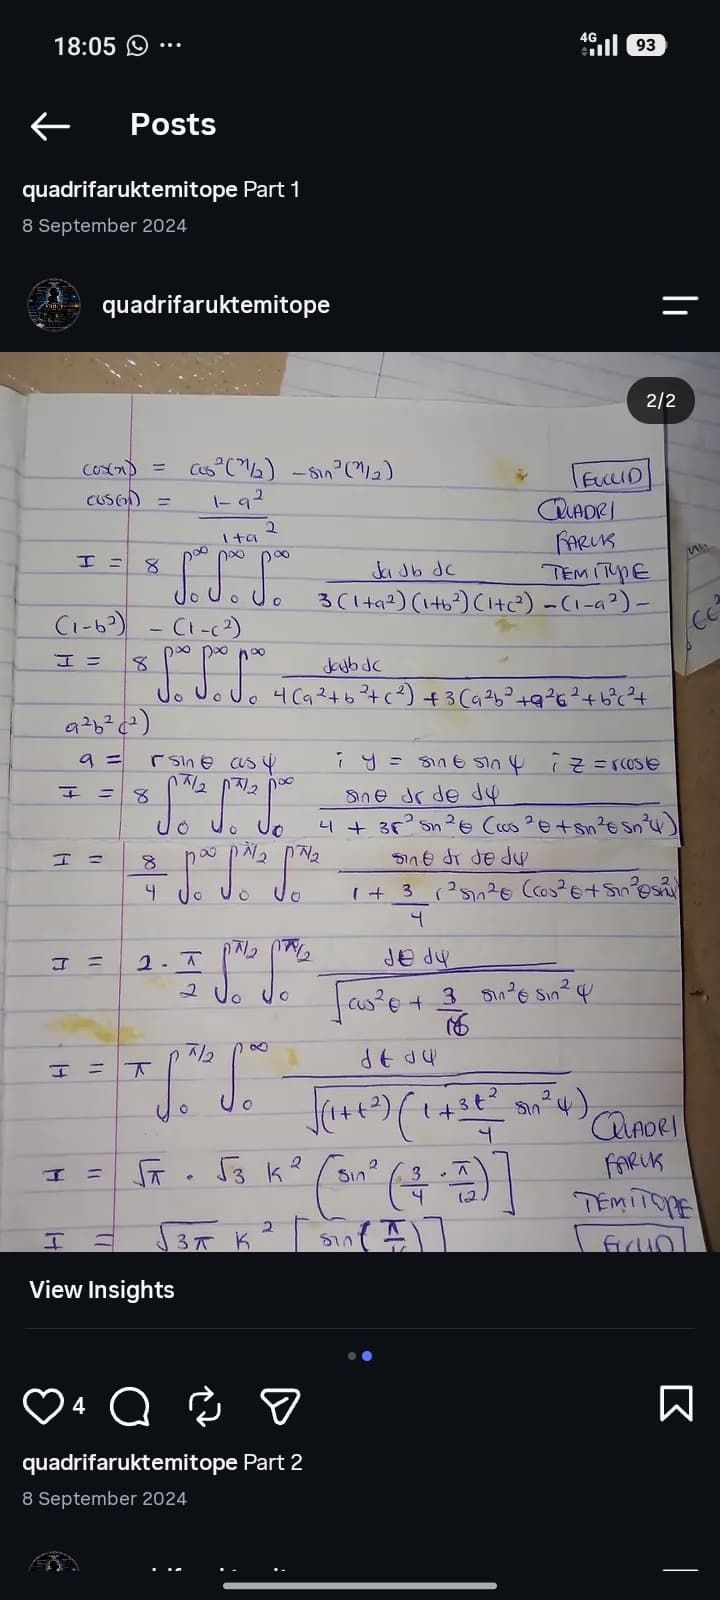 18:05 ...
4G 93
Posts
quadrifaruktemitope Part 1
8 September 2024
quadrifaruktemitope
2/2
cos(x) = cos²(x/2) - sin²(x/2)
EUCLID
cos(x) = 1-a² / 1+a²
QUADRI
FARUK
I = 8 ∫₀^∞ ∫₀^∞ ∫₀^∞ da db dc / 3(1+a²)(1+b²)(1+c²) - (1-a²) -
TEMITYPE
(1-b²) - (1-c²)
I = 8 ∫₀^∞ ∫₀^∞ ∫₀^∞ da db dc / 4(a²+b²+c²) + 3(a²b²+a²c²+b²c²+
a²b²c²)
a = r sinθ cosψ ; y = sinθ sinψ ; z = r cosθ
I = 8 ∫₀^π/2 ∫₀^π/2 ∫₀^∞ sinθ dr dθ dψ / 4 + 3r² sin²θ (cos²θ + sin²θ sin²ψ)
I = 8/4 ∫₀^∞ ∫₀^π/2 ∫₀^π/2 sinθ dr dθ dψ / 1 + 3/4 r² sin²θ (cos²θ + sin²θ sin²
I = 2 · π/2 ∫₀^π/2 ∫₀^π/2 dθ dψ / √cos²θ + 3/16 sin²θ sin²ψ
I = π ∫₀^π/2 ∫₀^∞ dt dψ / √(1+t²)(1 + 3t²/4 sin²ψ)
QUADRI
FARUK
I = √π · √3 K² (sin² (3/4 · π/12)]
TEMITOPE
I = √3π K² [sin(π
EUCLID
View Insights
4
quadrifaruktemitope Part 2
8 September 2024